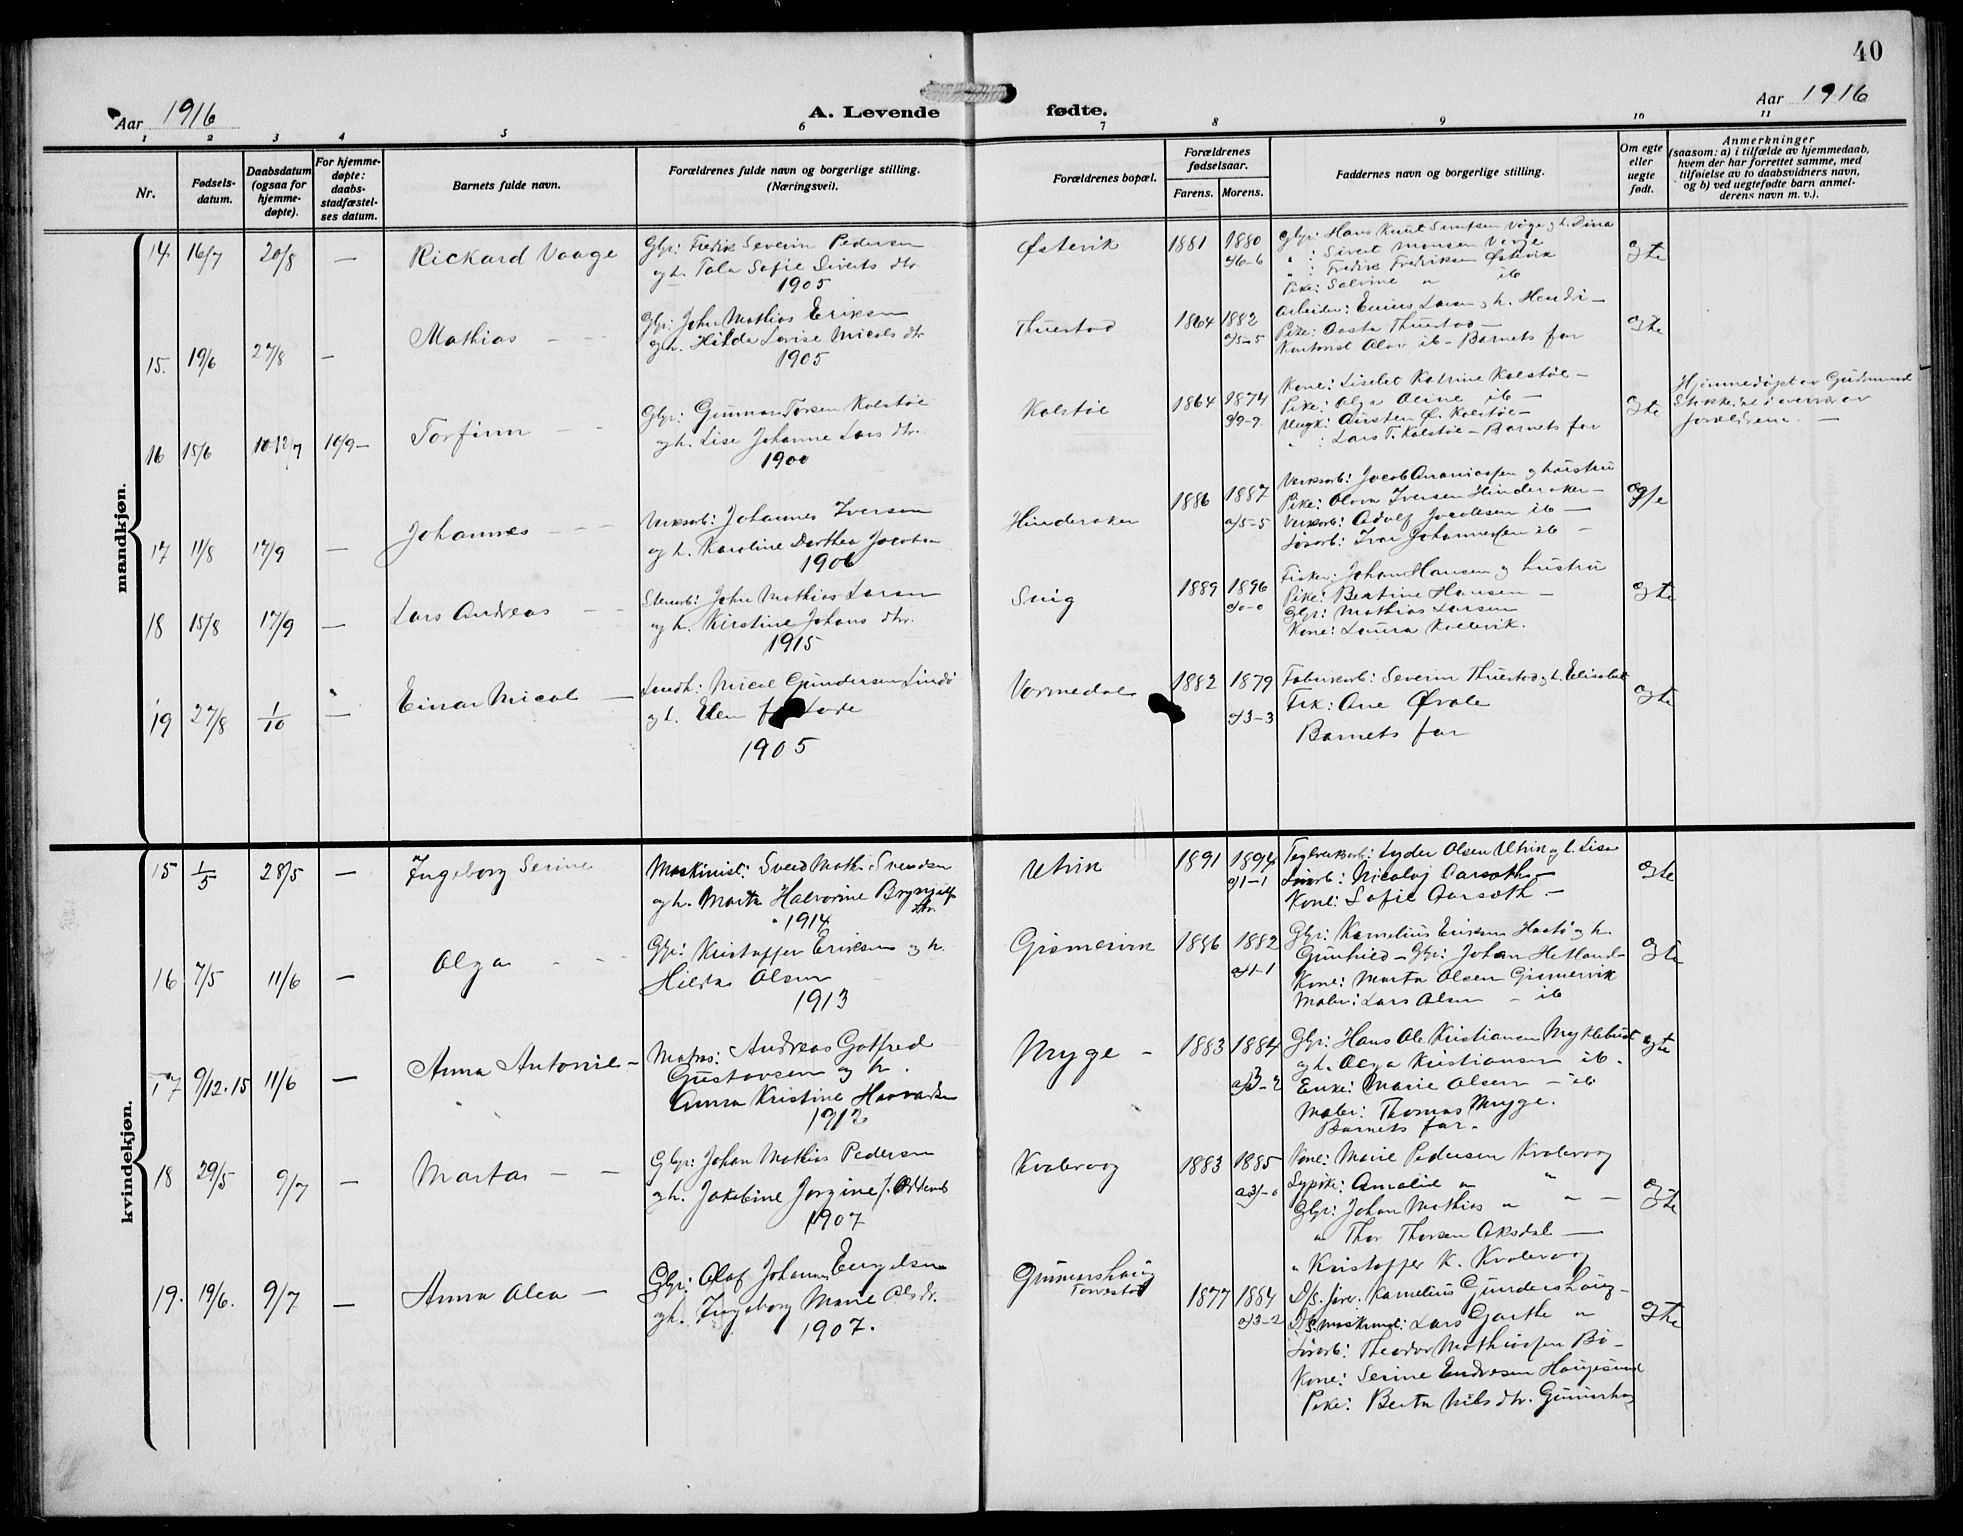 40
Aar 1916
A. Levende fødte.
Aar 1916
1 2 3 4 5 6 7 8 9 10 11
Nr.
Fødsels-
datum.
Daabsdatum
(ogsaa for
hjemme-
døpte).
For hjemme-
døpte:
daabs-
stadfæstel-
ses datum.
Barnets fulde navn.
Forældrenes fulde navn og borgerlige stilling.
(Næringsvei).
Forældrenes bopæl.
Forældrenes
fødselsaar.
Farens. Morens.
Faddernes navn og borgerlige stilling.
Om egte
eller
uegte
født.
Anmerkninger
(saasom: a) i tilfælde av hjemmedaab,
hvem der har forrettet samme, med
tilføielse av to daabsvidners navn,
og b) ved uegtefødte barn anmel-
derens navn m. v.).
mandkjøn.
14 16/7 20/8 — Rickard Vaage
Gbr: Fredrik Severin Pedersen
og h. Tala Sofie Siverts dtr
1905
Østevik 1881 1880
Gbr: Hans Knut Knutsen Våge og h. Dina
" : Sivert Monsen Vaage
" : Fredrik Fredriksen Østevik
Pike: Salvine " ib
egte
15. 19/6 27/8 — Mathias — —
Gbr: John Mathias Eriksen
og h. Hilda Lovise Nicols dtr
1905
Thuestad 1864 1882
a/5-5
Arbeider: Enius Larsen og h. Hendri-
Pike: Aasta Thuestad —
Kontorist Olav ib — Barnets far
egte
16 15/6 10-12/7 10/9 — Torfinn — —
Gbr: Gunnar Torsen Kolstøe
og h. Lise Johanne Lars dtr.
1900
Kolstøe 1864 1874
a/9-9
Kone: Lisebet Katrine Kolstøe —
Pike: Olga Oline ib —
Ungk: Aursten G. Kolstøe —
" : Lars T. Kolstøe — Barnets far
egte
Hjemmedøpt av Gudmund
Stokke i overvær av
forældrene. —
17 11/8 17/9 — Johannes — —
Verksarb: Johannes Iversen
og h. Karoline Dorthea Jacobsen
1906
Hinderaker 1886 1887
a/5-5
Verksarb: Jacob Ananiassen og hustru
Pike: Olava Iversen Hinderaker —
Verksarb: Adolf Jacobsen ib —
Sjøarb: Ivar Johannessen ib —
egte
18 15/8 17/9 — Lars Andreas — —
Stenarb: John Mathias Larsen
og h. Kirstine Johans dtr.
1915
Snig 1889 1896
a/0-0
Fisker: Johan Hansen og hustru
Pike: Bertine Hansen —
Gbr: Mathias Larsen
Kone: Laura Kollevik.
egte
19 27/8 1/10 — Einar Nicol —
Landh: Nicol Gundersen Lindø
og h. Elen f. Lode
1905
Vormedal 1882 1879
a/3-3
Fabrikarb: Severin Thuestad og h. Elisabet
Frk: Ane Øvale
Barnets far
egte
kvindekjøn.
15 1/5 28/5 — Ingeborg Serine
Maskinist: Sverd Math. Svendsen
og h. Marta Halvorine Brynjulfs
dtr.
1914
Utvik 1891 1894
a/1-1
Teglverksarb: Lyder Olsen Utvik og h. Lisa
Sjøarb: Nicolaj Aarsæth —
Kone: Sofie Aarsæth —
egte
16 7/5 11/6 — Olga — —
Gbr: Kristoffer Eriksen og h.
Hildas Olsen
1913
Gismervik 1886 1882
a/1-1
Gbr: Kornelius Eriksen Hastø og h.
Gunhild — Gbr: Johan Hetland —
Kone: Marta Olsen Gismervik
Maler: Lars Olsen — ib
egte
17 9/12.15 11/6 — Anna Antonie —
Matros: Andreas Gotfred
Gustavsen og h.
Anna Kristine Haavardsen
1912
Myge — 1883 1884
a/3-2
Gbr: Hans Ole Kristiansen Myklebust
og h. Olga Kristiansen ib.
Enke: Marie Olsen — ib
Maler: Thomas Myge.
Barnets far.
egte
18 29/5 9/7 — Marta — —
Gbr: Johan Mathias Pedersen
og h. Jakobine Jorgine f.
1907
Kvalevaag 1883 1885
a/3-0
Kone: Marie Pedersen Kvalevaag
Sypike: Amalie " "
Gbr: Johan Mathias " " —
" Thor Thorsen Aksdal —
" Kristoffer K. Kvalevaag
egte
19. 19/6. 9/7 — Anna Alea —
Gbr: Olaf Johannes Engelsen
og h. Ingeborg Marie Ols dr.
1907.
Gunnarshaug
Torvestad
1877 1884
a/3-2
D/S. fører. Kornelius Gundershaug —
D/S. maskinist: Lars Gjerthe "
Sjøarb: Theodor Mathiassen Bø —
Kone: Serine Endresen Haugesund
Pike: Berta Nilsdtr. Gunnarshaug
egte